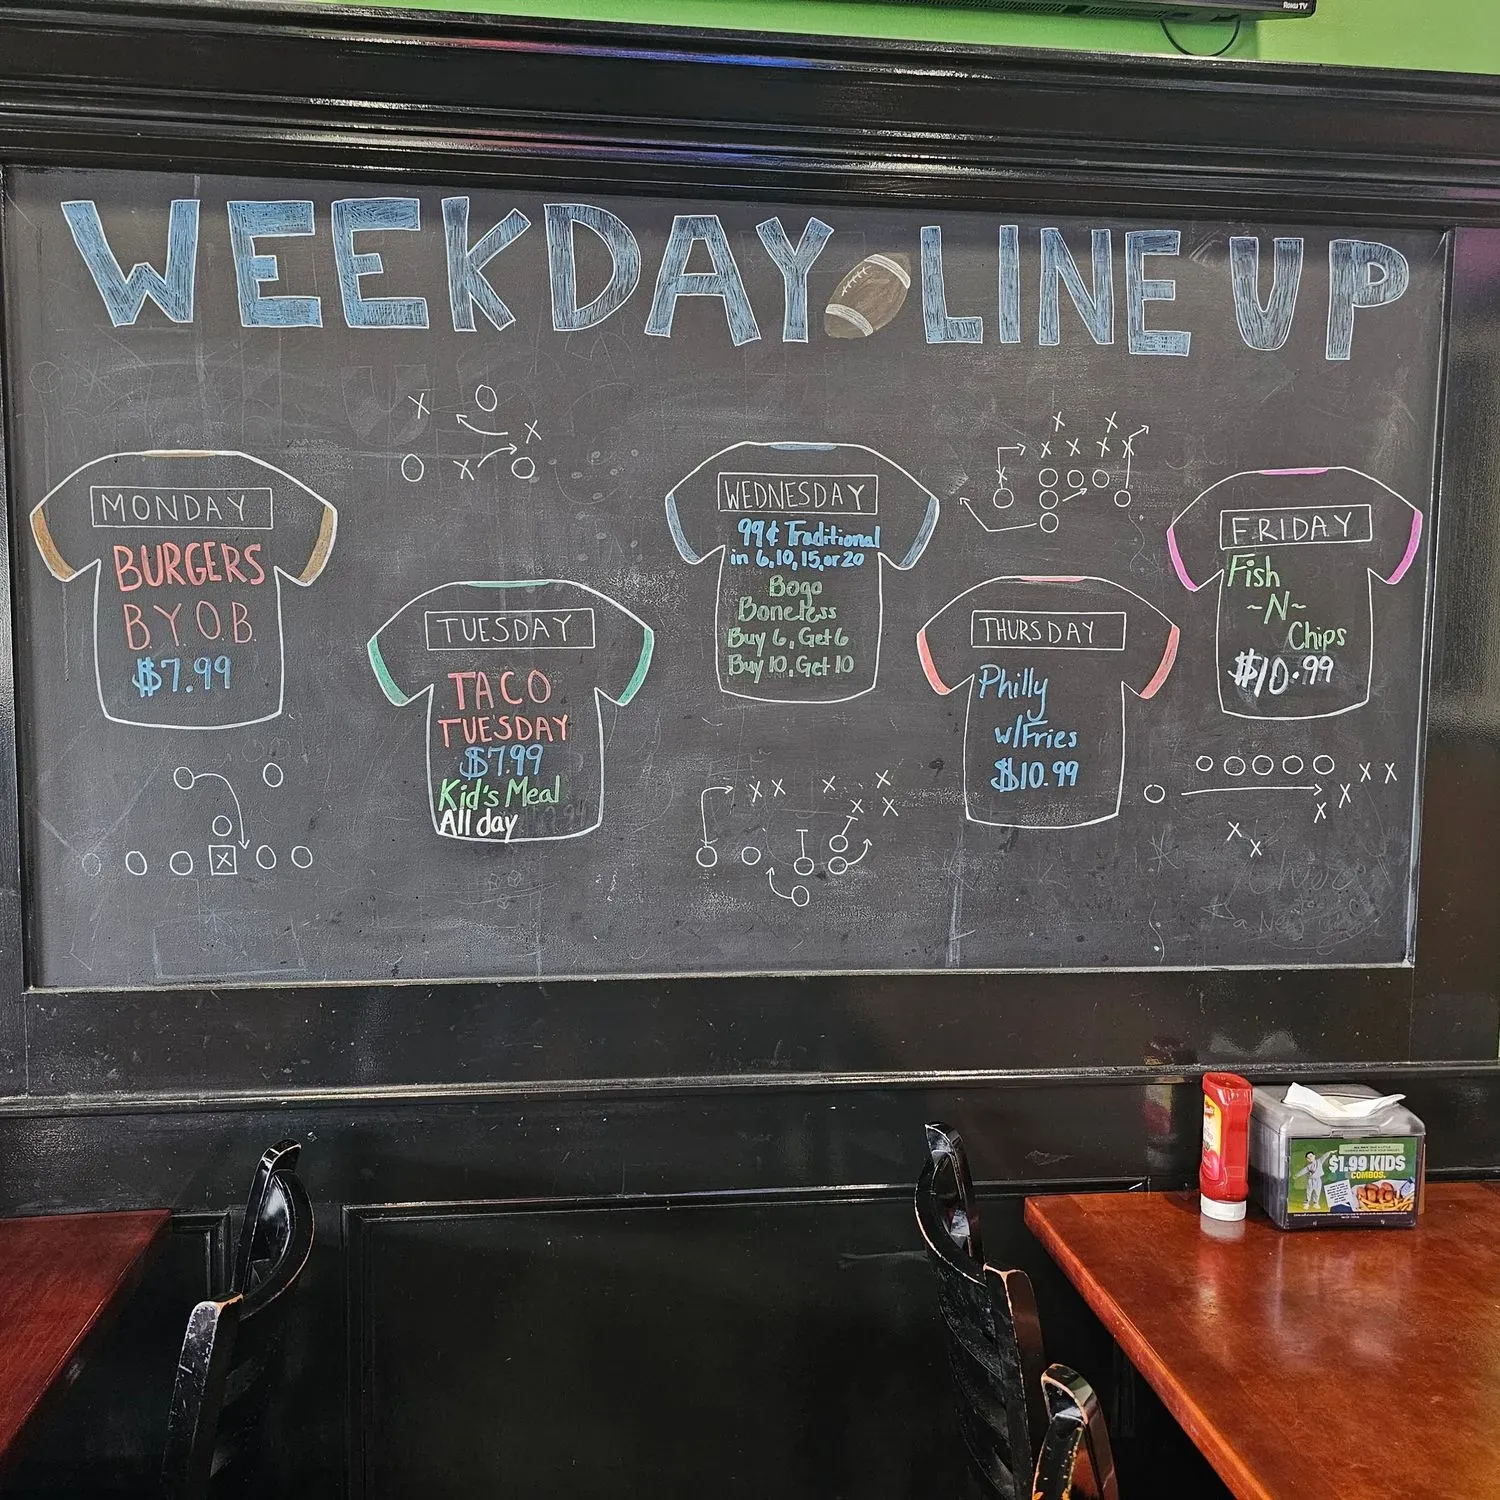 Roku TV
WEEKDAY LINE UP
MONDAY
BURGERS
B.Y.O.B.
$7.99
TUESDAY
TACO
TUESDAY
$7.99
Kid's Meal
All day
WEDNESDAY
99¢ Traditional
in 6, 10, 15, or 20
Bogo
Boneless
Buy 6, Get 6
Buy 10, Get 10
THURSDAY
Philly
w/Fries
$10.99
FRIDAY
Fish
~N~
Chips
$10.99
$1.99 KIDS
COMBOS.